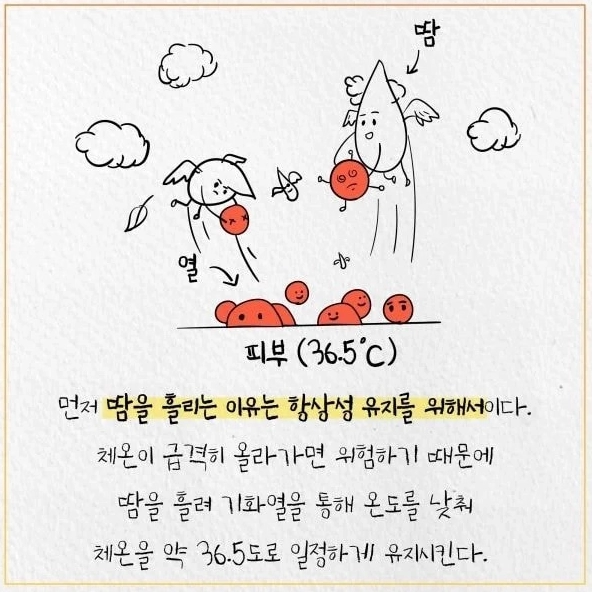 땀
열
피부 (36.5°C)
먼저 땀을 흘리는 이유는 항상성 유지를 위해서이다.
체온이 급격히 올라가면 위험하기 때문에
땀을 흘려 기화열을 통해 온도를 낮춰
체온을 약 36.5도로 일정하게 유지시킨다.